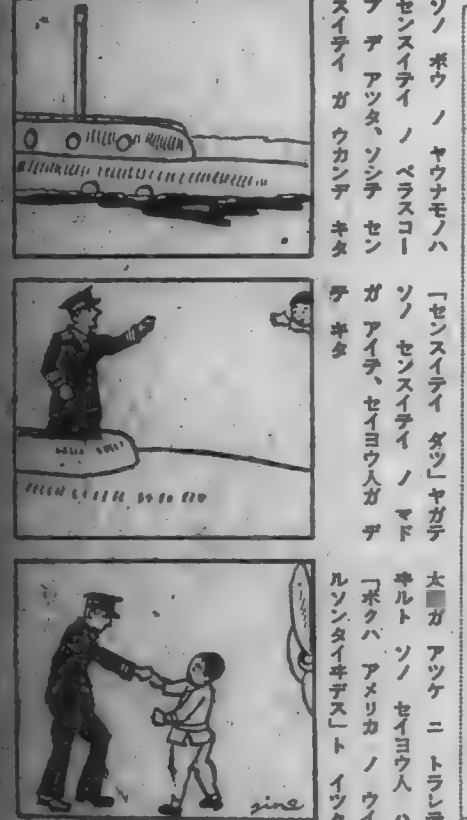 ソノ ボウ ノ ヤウナモノハ
センスイテイ ノ ペラスコー
プ デ アツタ、ソシテ セン
スイテイ ガ ウカンデ キタ
「センスイテイ ダツ」ヤガテ
ソノ センスイテイ ノ マド
ガ アイテ、セイヨウ人ガ デ
テ キタ
太 ガ アツケ ニ
ヰルト ソノ セイヨウ人 ハ
「ボクハ アメリカ ノ ウイ
ルソンタイヰデス」ト イツタ